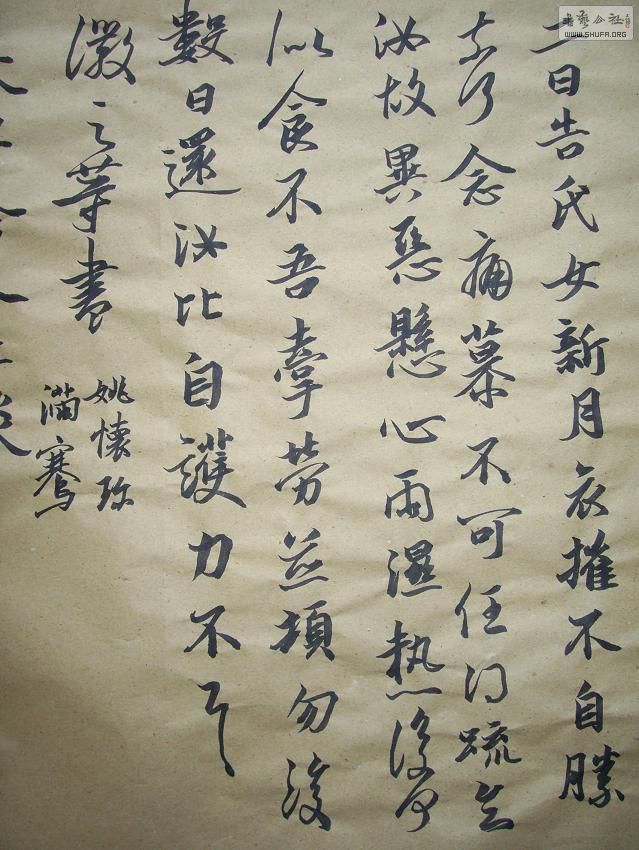 書藝公社
WWW.SHUFA.ORG
二日告氏女新月哀摧不自勝
奈何念痛慕不可任得疏知
汝故異惡懸心雨濕熱復何
似食不吾牽勞並頓勿復
數日還汝比自護力不具
徽之等書
姚懷珍
滿騫